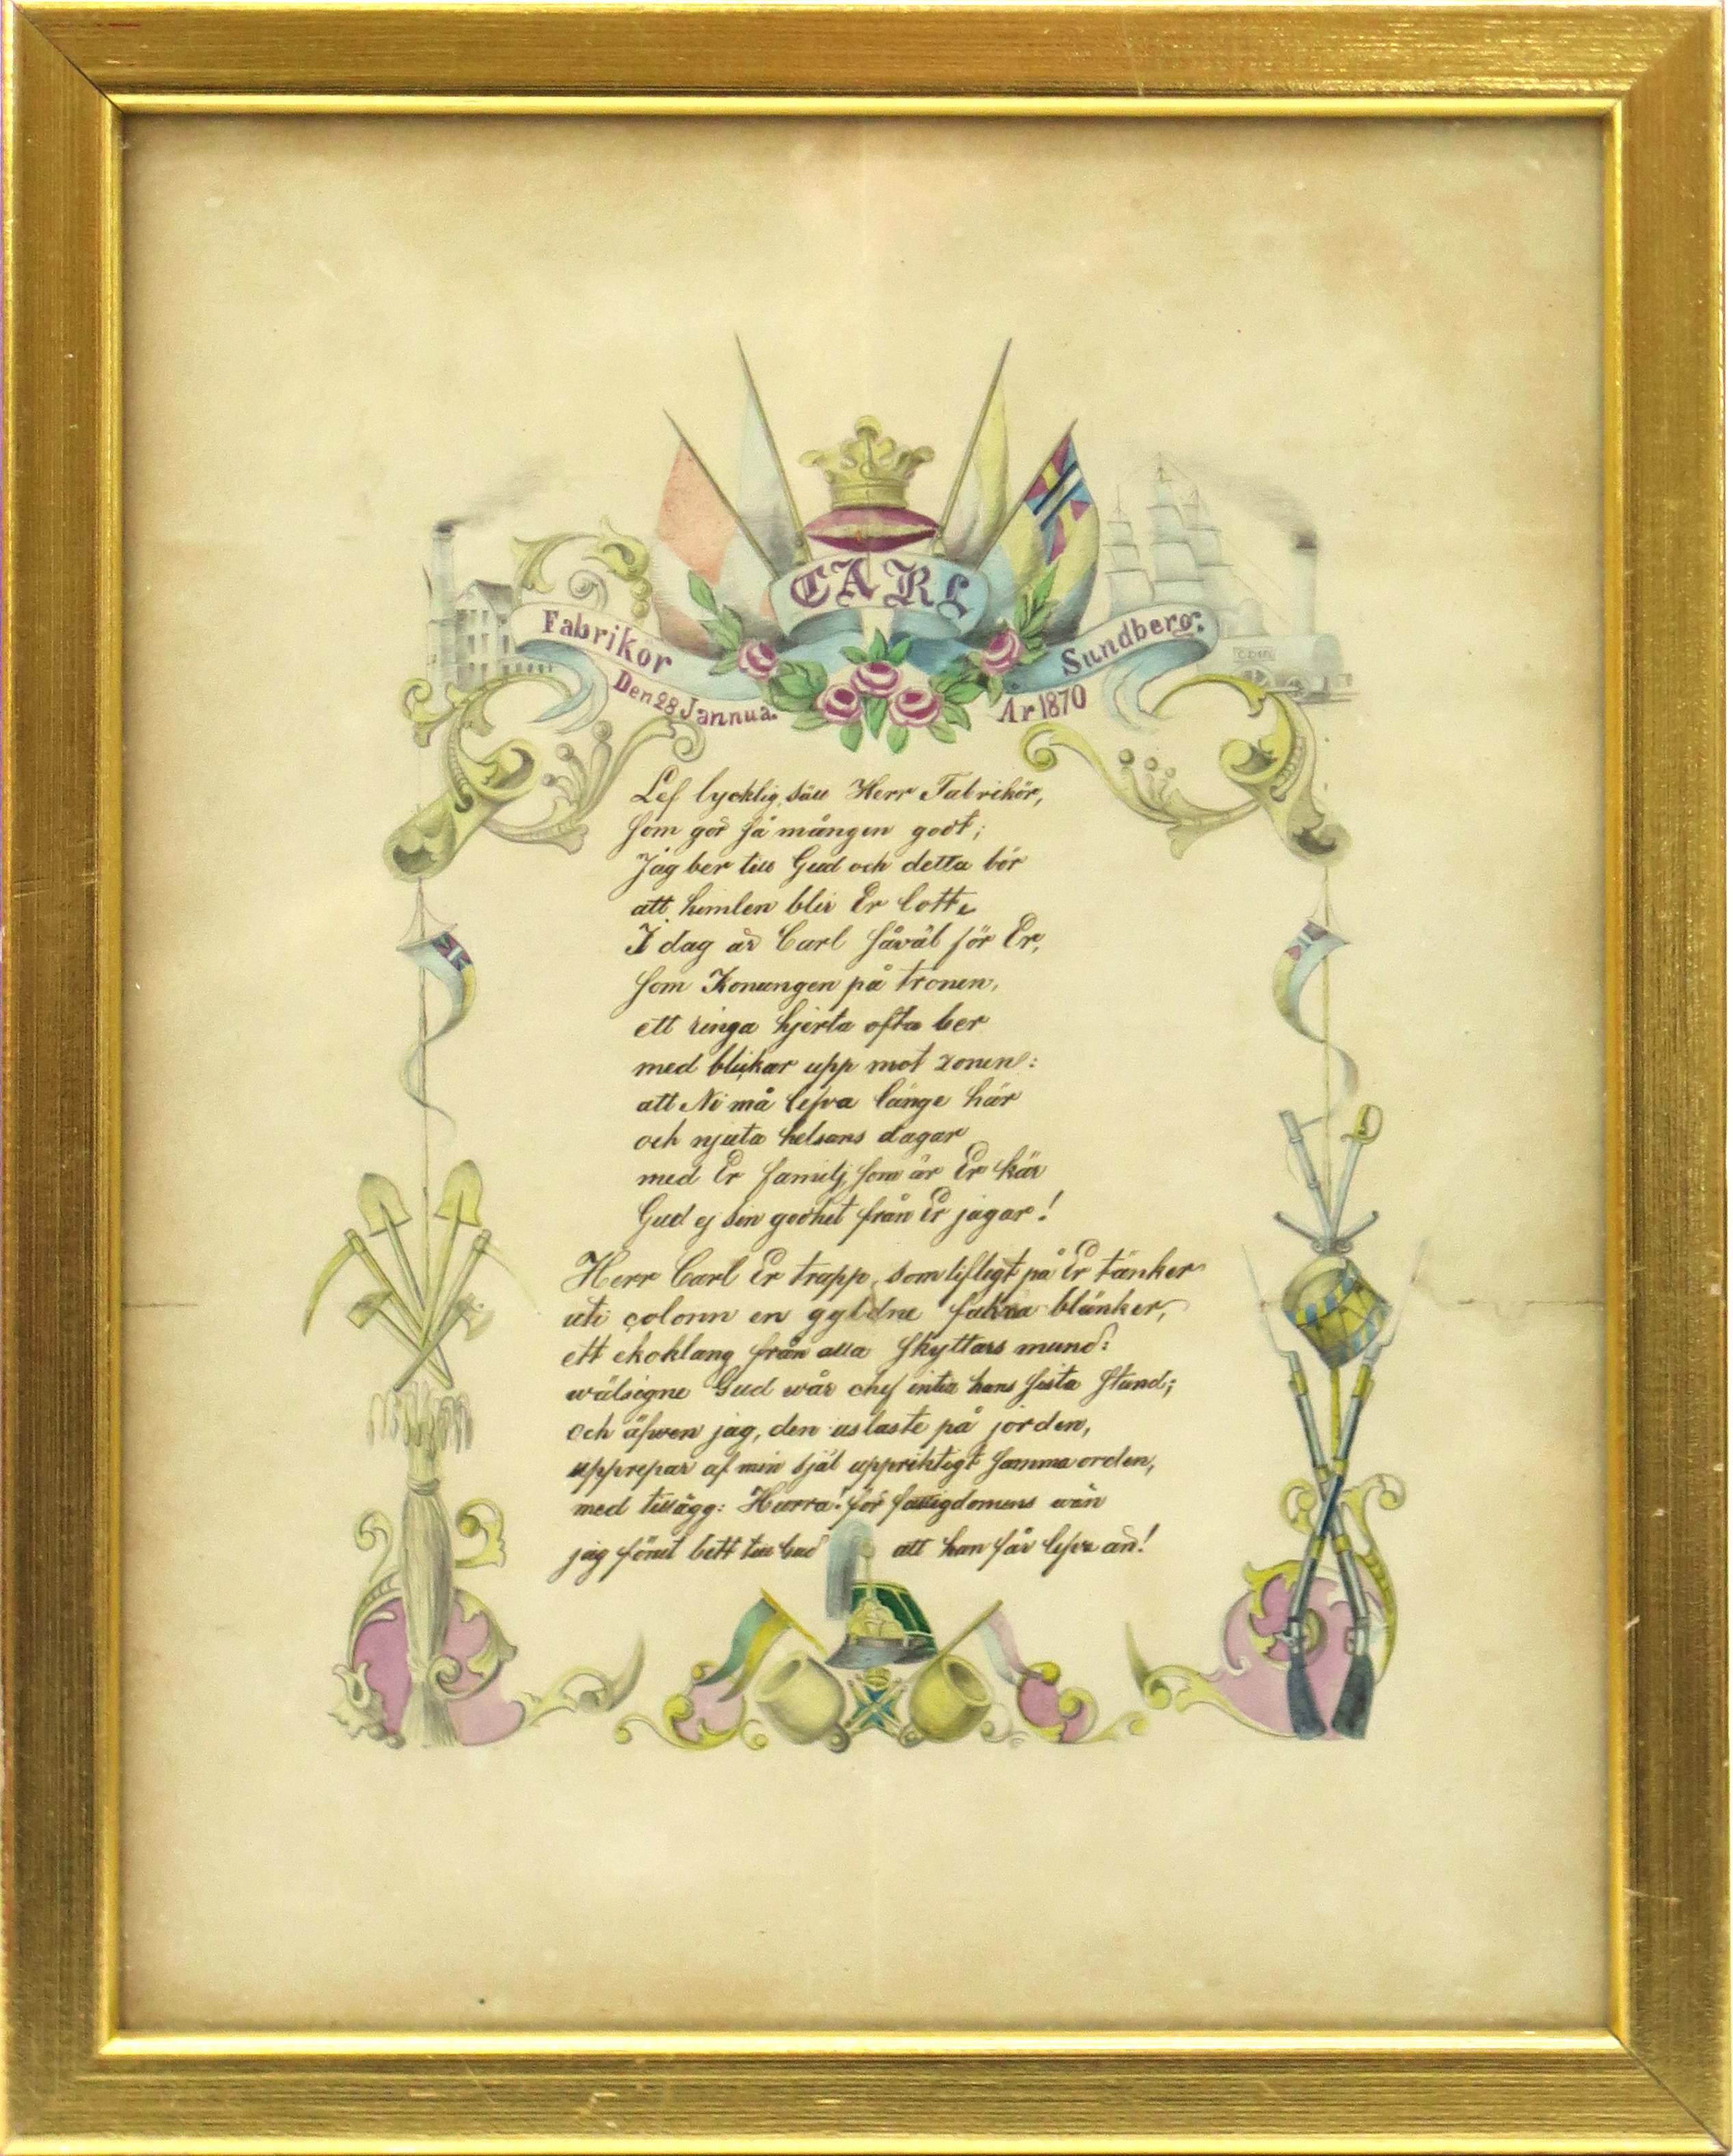 CARL
Fabrikör Sundberg:
Den 28 Jannua. Ar 1870
Lef lycklig, säll Herr Fabrikör,
som gör så mången godt;
Jag ber till Gud och detta bör
att himlen blir Er lott.
I dag är Carl såväl för Er,
som Konungen på tronen,
ett ringa hjerta ofta ber
med blickar upp mot zonen:
att Ni må lefva länge här
och njuta helsans dagar
med Er familj, som är Er kär
Gud ej sin godhet från Er jagar!
Herr Carl Er trupp, som lifligt på Er tänker
uti colonn en gyldne blänker,
ett ekoklang från alla skyttars mund:
wälsigne Gud wår chef intia hans sista stund;
och äfwen jag, den uslaste på jorden,
upprepar af min själ uppriktigt samma orden,
med tillägg: Hurra! för fattigdomens wän
jag förut bett till Gud att han får lefva än!